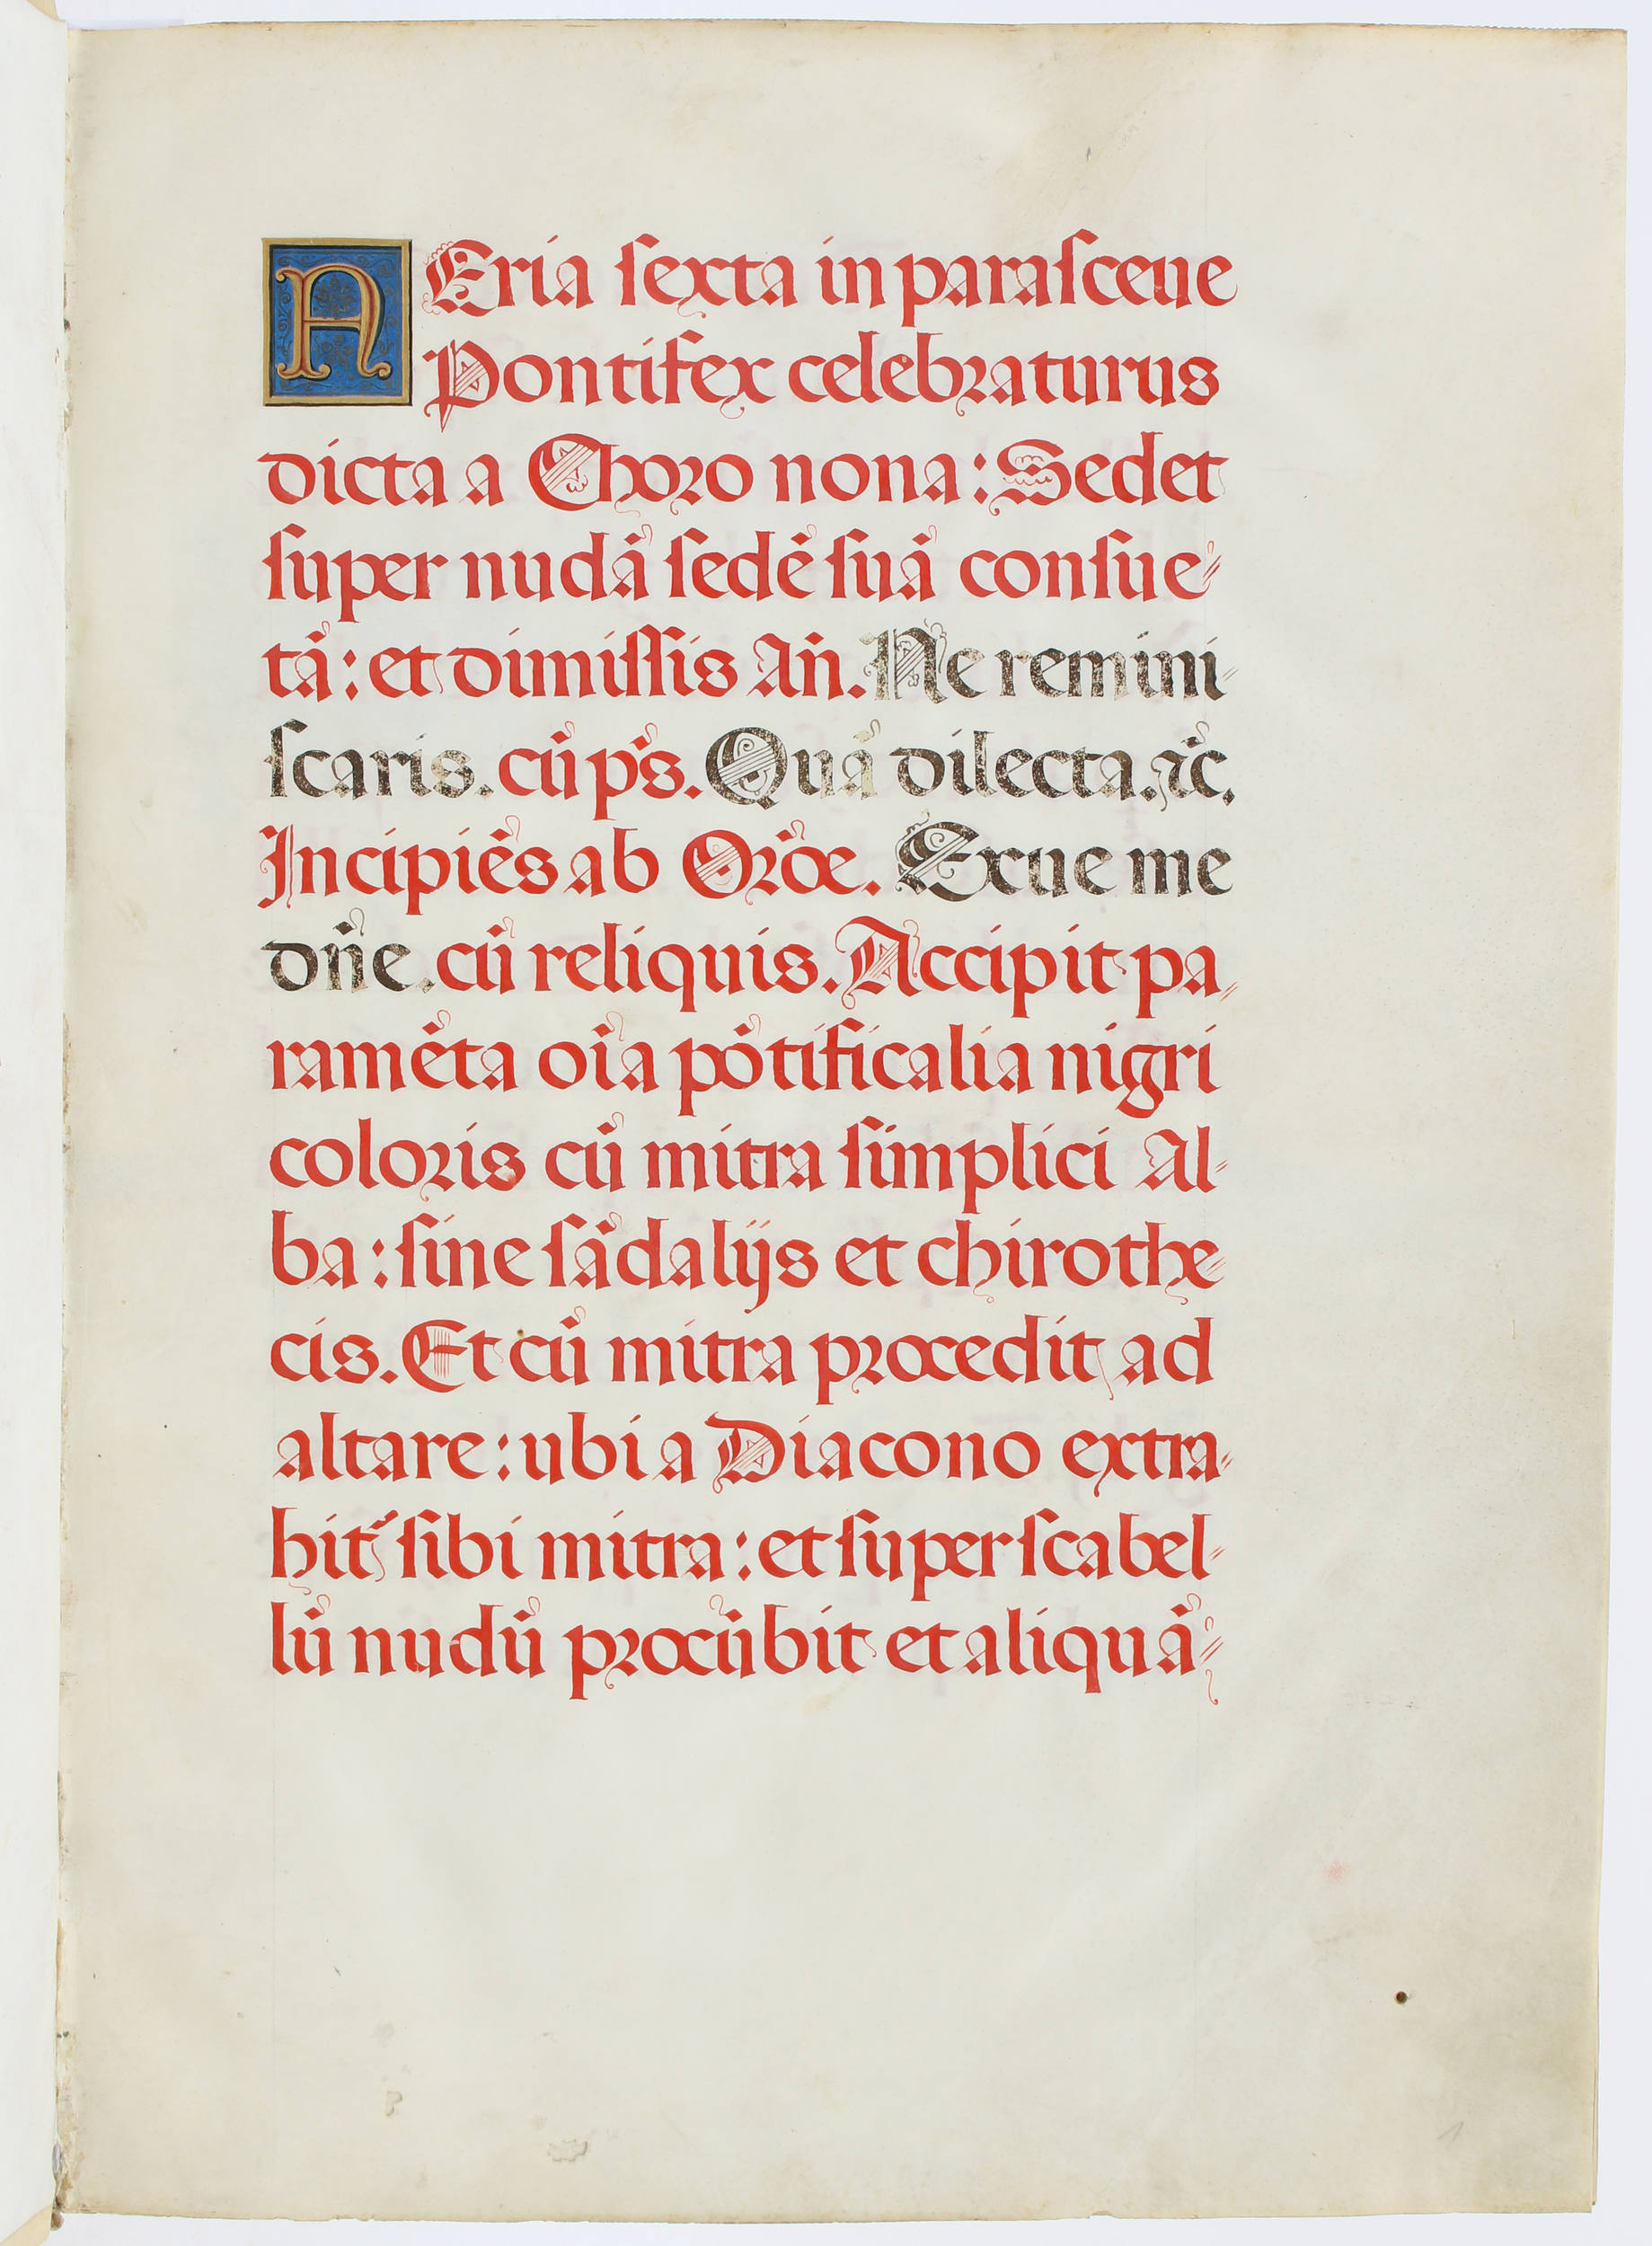 FEria ſexta in paraſceue
Pontifex celebraturus
dicta a Choro nona: Sedet
ſuper nudā ſedē ſuā conſue-
tā: et dimiſſis Añ. Ne remini-
ſcaris. cū ps̄. Quā dilecta. ⁊c̄.
Incipiēs ab Orōe. Exue me
dn̄e. cū reliquis. Accipit pa-
ramēta oīa pōtificalia nigri
coloris cū mitra ſimplici Al-
ba: ſine ſādalijs et chirothe-
cis. Et cū mitra procedit ad
altare: ubi a Diacono extra-
hit᷑ ſibi mitra: et ſuper ſcabel-
lū nudū procūbit et aliquā-